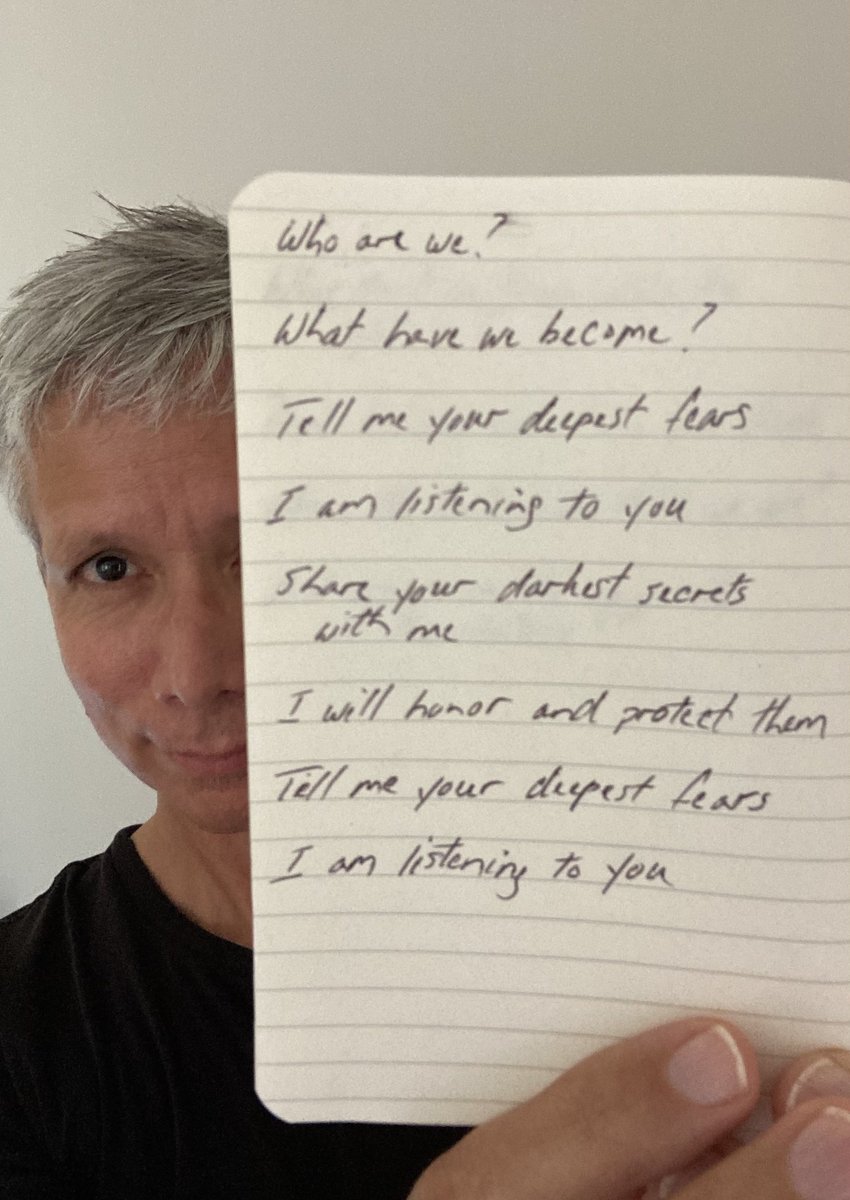 Who are we?
What have we become?
Tell me your deepest fears
I am listening to you
Share your darkest secrets
with me
I will honor and protect them
Tell me your deepest fears
I am listening to you